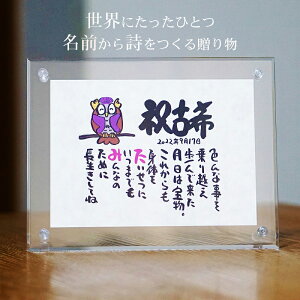 世界にたったひとつ
名前から詩をつくる贈り物
祝古希
2022年9月17日
色んな事を
乗り越え
歩んで来た
月日は宝物。
これからも
身体を
たいせつに
いつまでも
みんなの
ために
長生きしてね